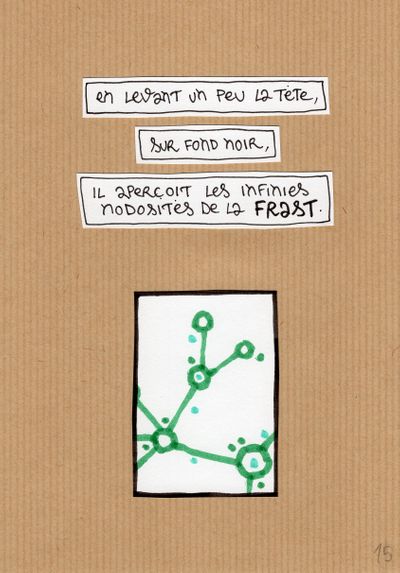 en levant un peu la tête,
sur fond noir,
il aperçoit les infinies
nodosités de la FRAST.
15